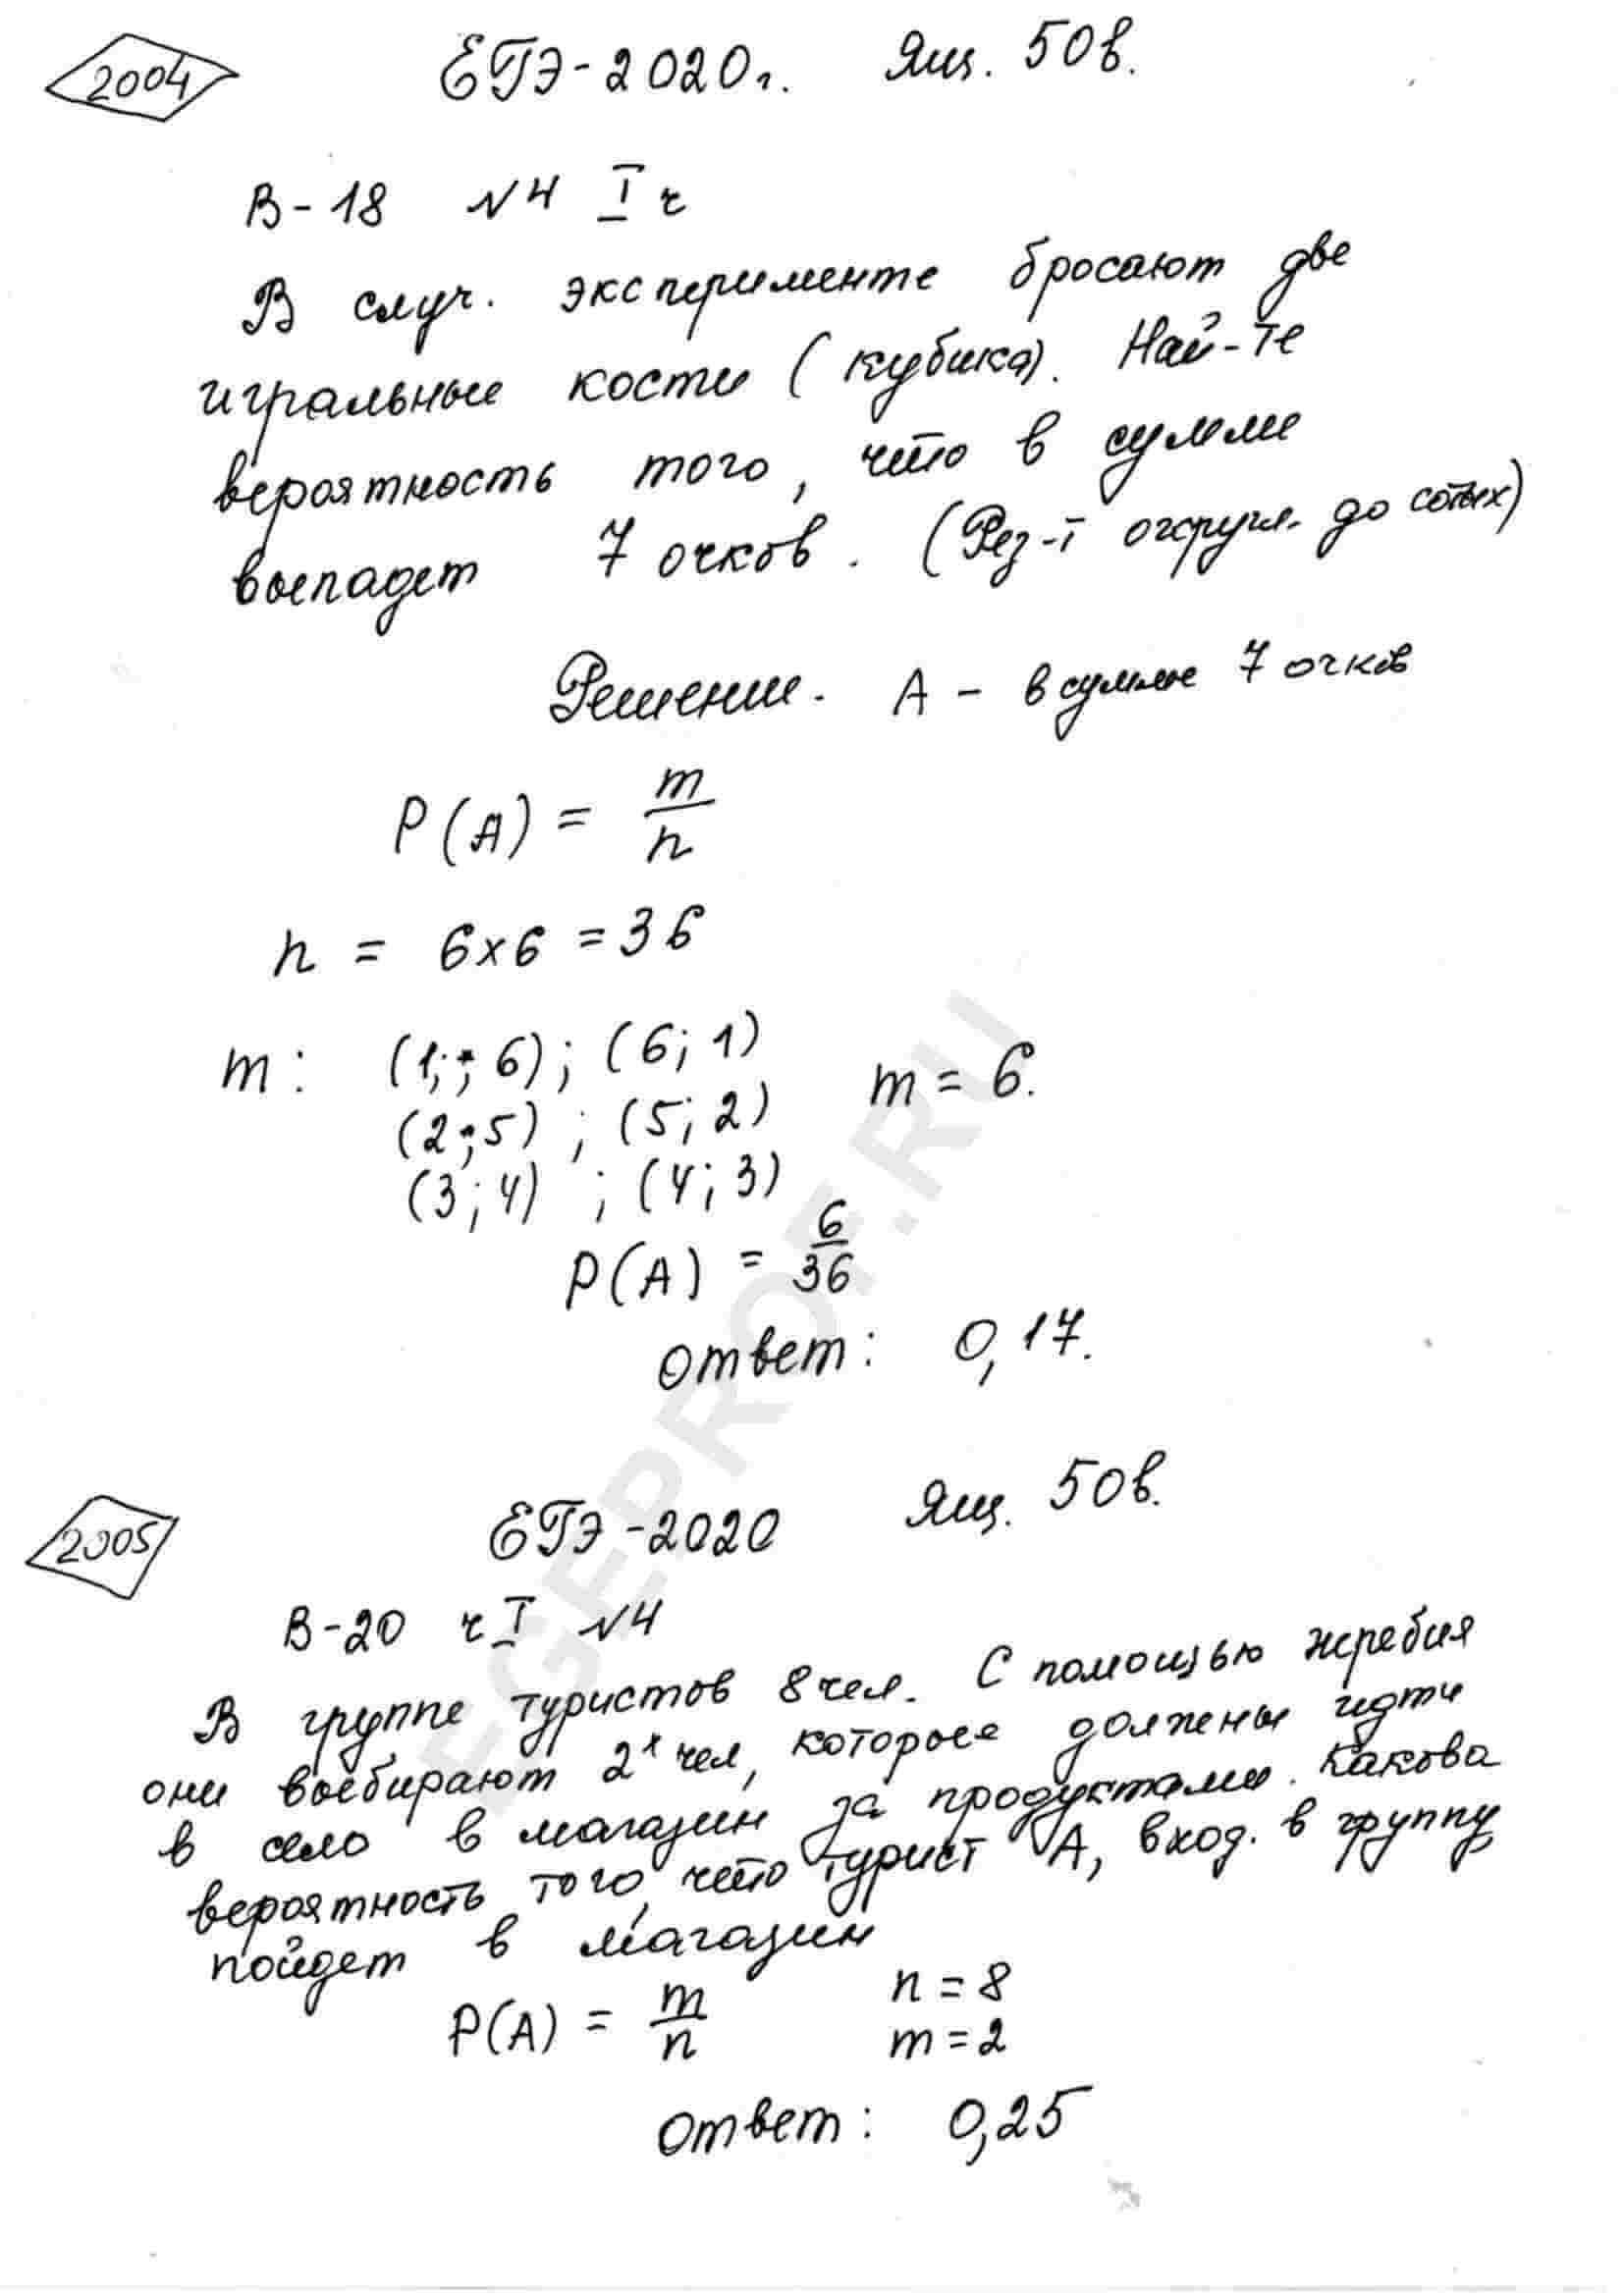 2004
ЕГЭ-2020г. Ящ. 50в.
В-18 №4 I ч
В случ. эксперименте бросают две
игральные кости (кубика). Най-те
вероятность того, что в сумме
выпадет 7 очков. (Рез-т округл. до сотых)
Решение. А - в сумме 7 очков
P(A) = m/n
n = 6×6 = 36
m: (1; ; 6); (6; 1)
(2; 5) ; (5; 2) m = 6.
(3; 4) ; (4; 3)
P(A) = 6/36
Ответ: 0,17.
2005
ЕГЭ-2020 Ящ. 50в.
В-20 ч I №4
В группе туристов 8 чел. С помощью жребия
они выбирают 2х чел, которые должены идти
в село в магазин за продуктами. Какова
вероятность того, что турист А, вход. в группу
пойдет в магазин
P(A) = m/n n = 8
m = 2
Ответ: 0,25
EGEPROF.RU